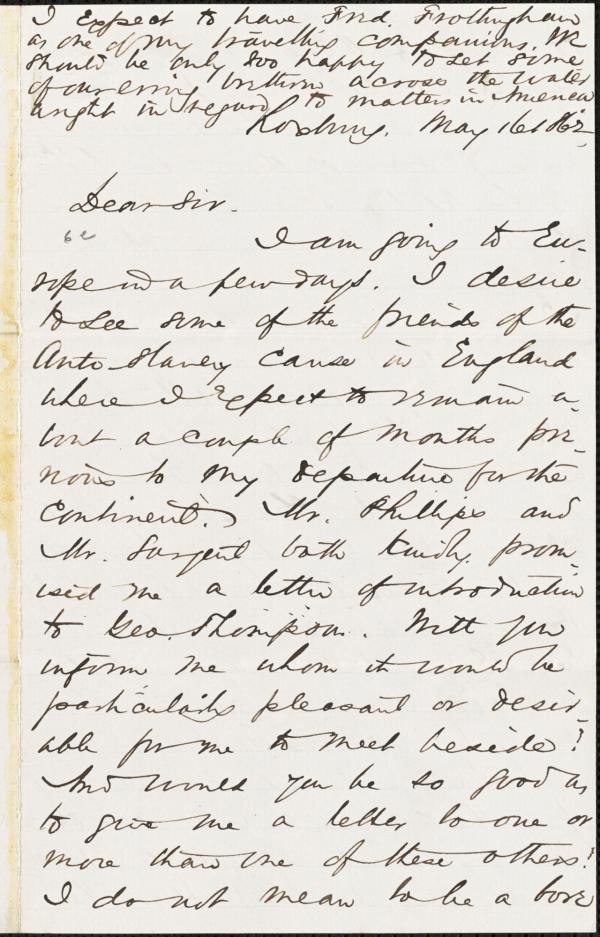 I expect to have Fred. Frothingham
as one of my travelling companions. We
should be only too happy to set some
of our erring brethren across the water
aright in regard to matters in America
Roxbury. May 16 1862
Dear Sir.
62
I am going to Eu-
rope in a few days. I desire
to see some of the friends of the
Anti-Slavery Cause in England
where I expect to remain a-
bout a couple of months pre-
vious to my departure for the
Continent. Mr. Phillips and
Mr. Sargent both kindly prom-
ised me a letter of introduction
to Geo. Thompson. Will you
inform me whom it would be
particularly pleasant or desir-
able for me to meet beside?
And would you be so good as
to give me a letter to one or
more than one of these others?
I do not mean to be a bore